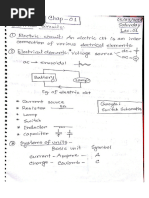 Chap-01
Saturday
Lec-01
① Electric circuit: An electric ckt is an inter
connection of various electrical elements.
② Electrical element: * Voltage source
dc
ac → sinusoidal
Battery
Lamp
Eg of electric ckt
* Current source
* Resistor
* Lamp
* Switch
* Inductor
* Capacitor
③ Systems of units -
Basic unit Symbol
Current - Ampere - A
Charge - Coulomb - C